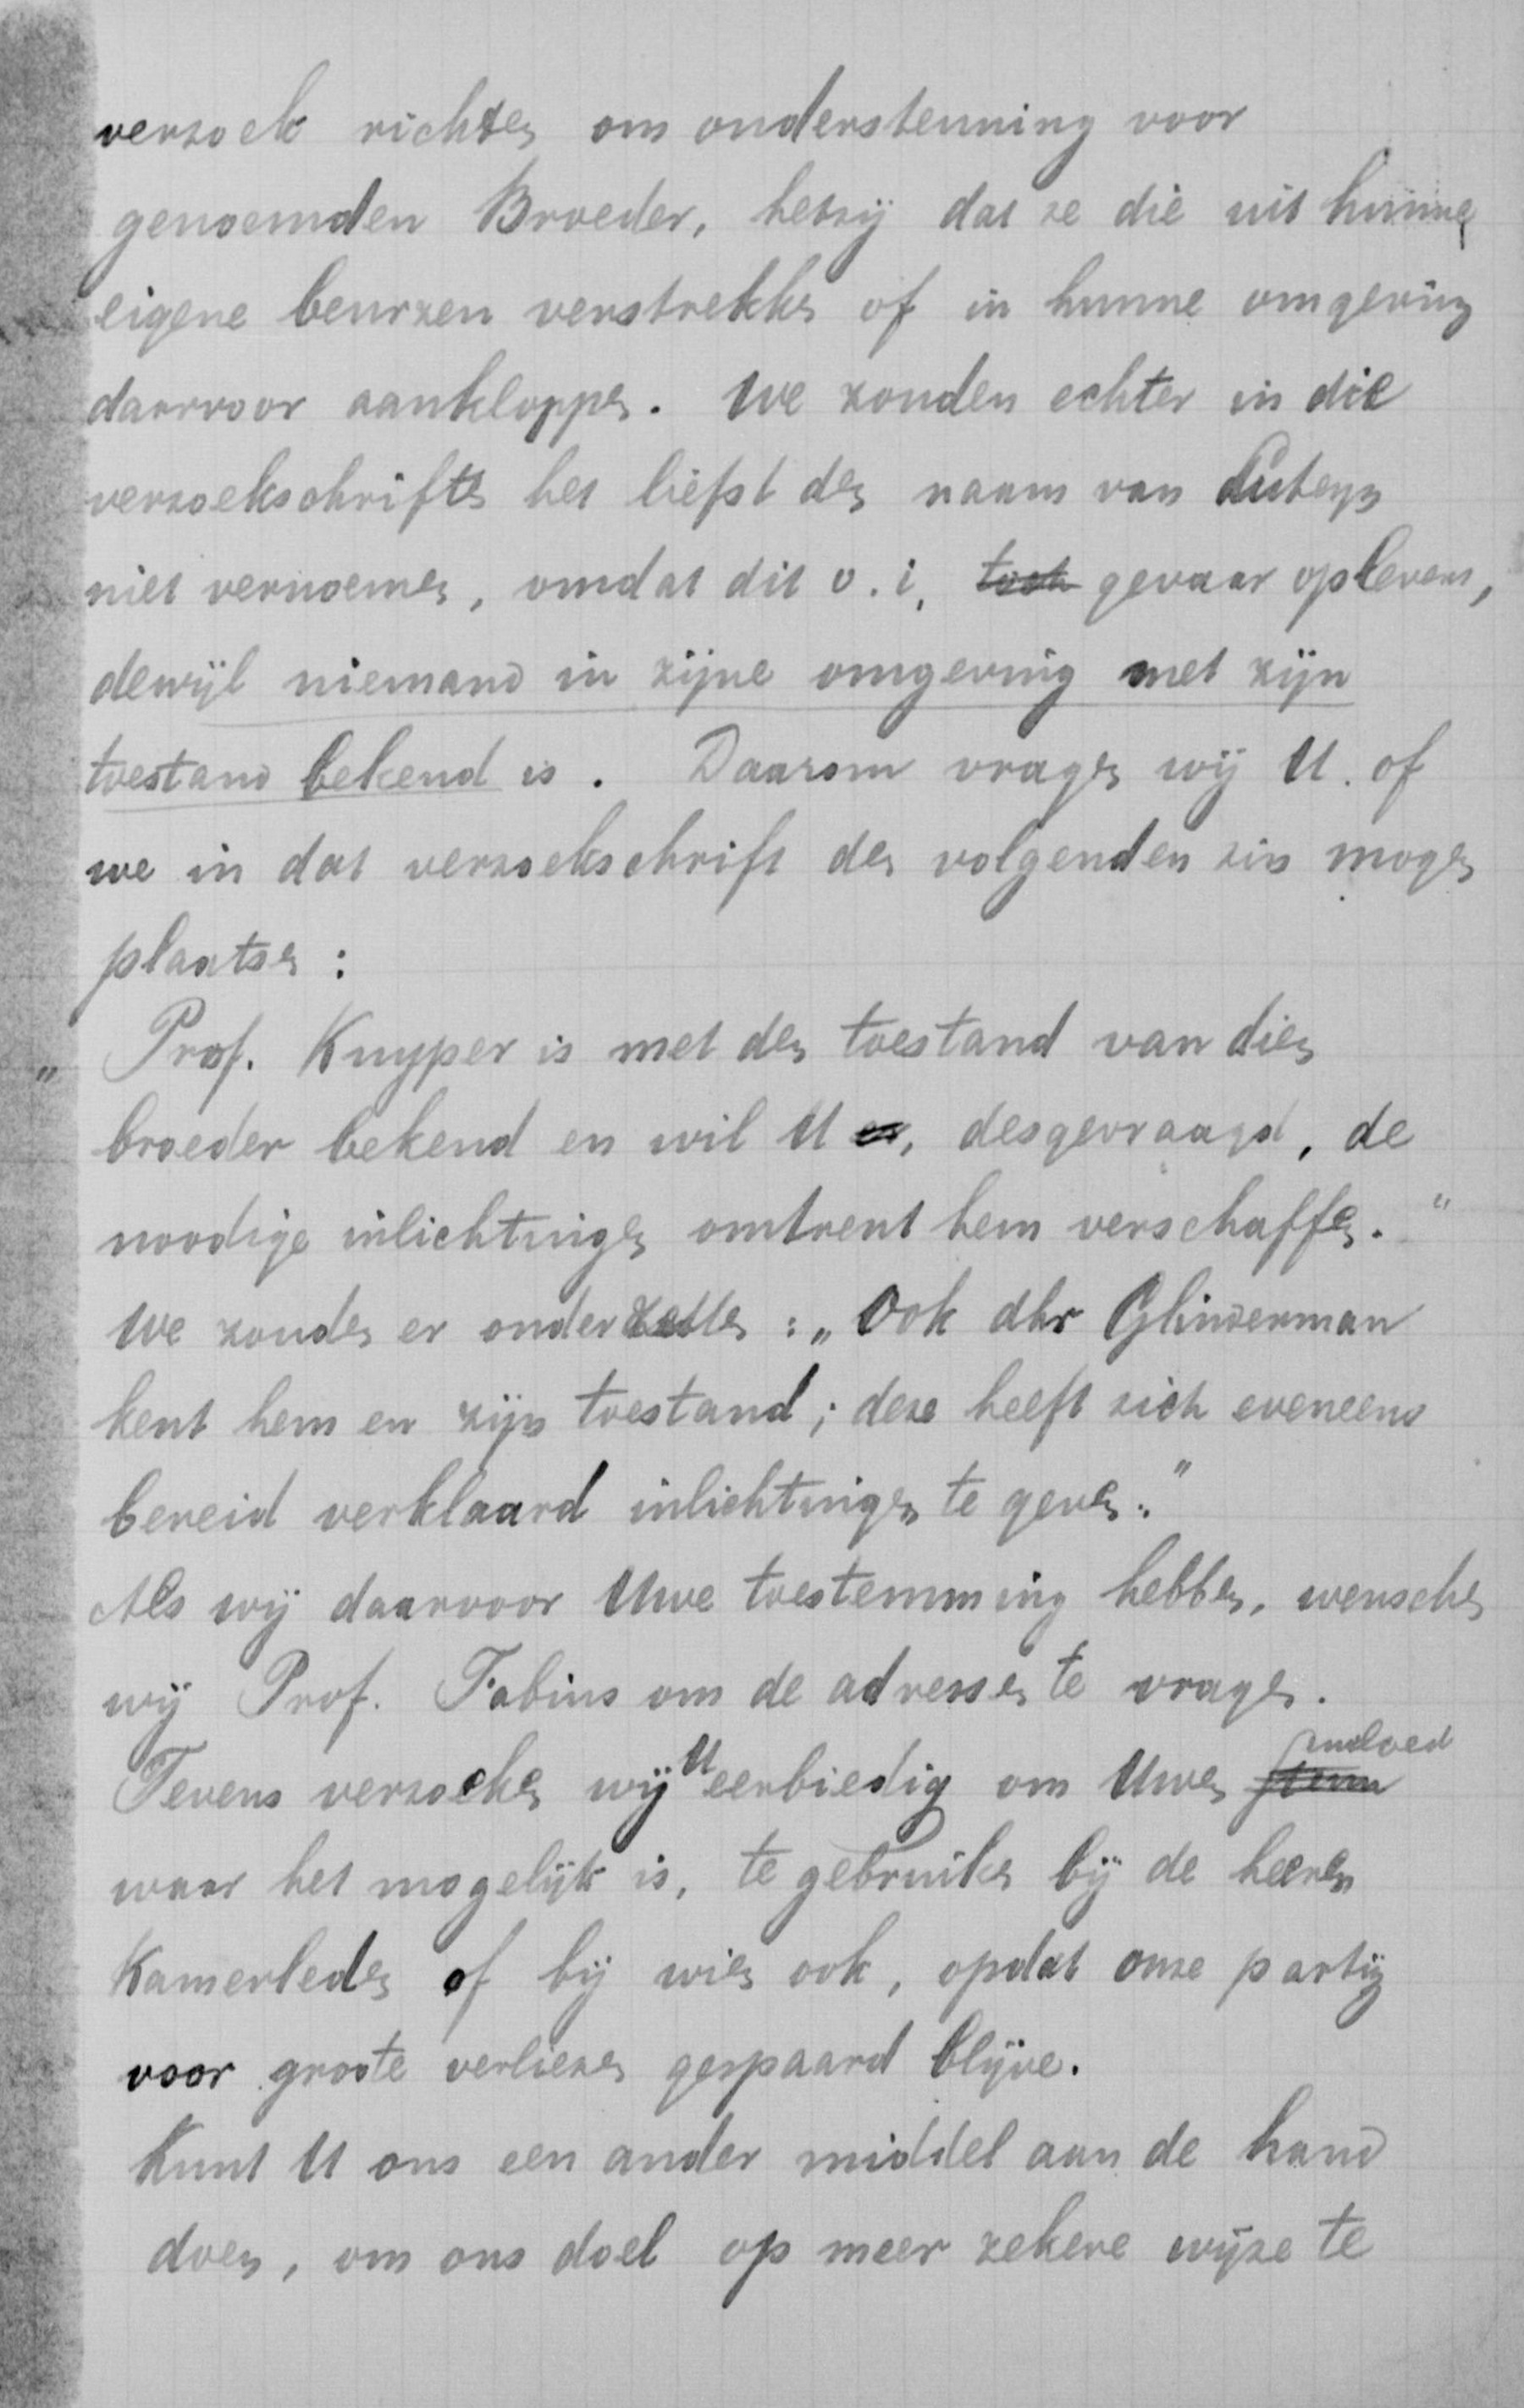 verzoek richten om ondersteuning voor
genoemden Broeder, hetzij dat ze die uit hunne
eigene beurzen verstrekken of in hunne omgeving
daarvoor aankloppen. We zouden echter in die
verzoekschriften het liefst den naam van
niet vernoemen, omdat dit o.i. toch gevaar opleveren,
dewijl niemand in zijne omgeving met zijn
toestand bekend is. Daarom vragen wij U. of
we in dat verzoekschrift den volgenden zin mogen
plaatsen:
„ Prof. Kuyper is met den toestand van dien
broeder bekend en wil U er, desgevraagd, de
noodige inlichtingen omtrent hem verschaffen. "
We zouden er onder zetten: „Ook dhr Glinderman
kent hem en zijn toestand; deze heeft zich eveneens
bereid verklaard inlichtingen te geven."
Als wij daarvoor Uwe toestemming hebben, wenschen
wij Prof. Fabius om de adressen te vragen.
Tevens verzoeken wij U eerbiedig om Uwen stem invloed
waar het mogelijk is, te gebruiken bij de heeren
Kamerleden of bij wien ook, opdat onze partij
voor groote verliezen gespaard blijve.
Kunt U ons een ander middel aan de hand
doen, om ons doel op meer zekere wijze te